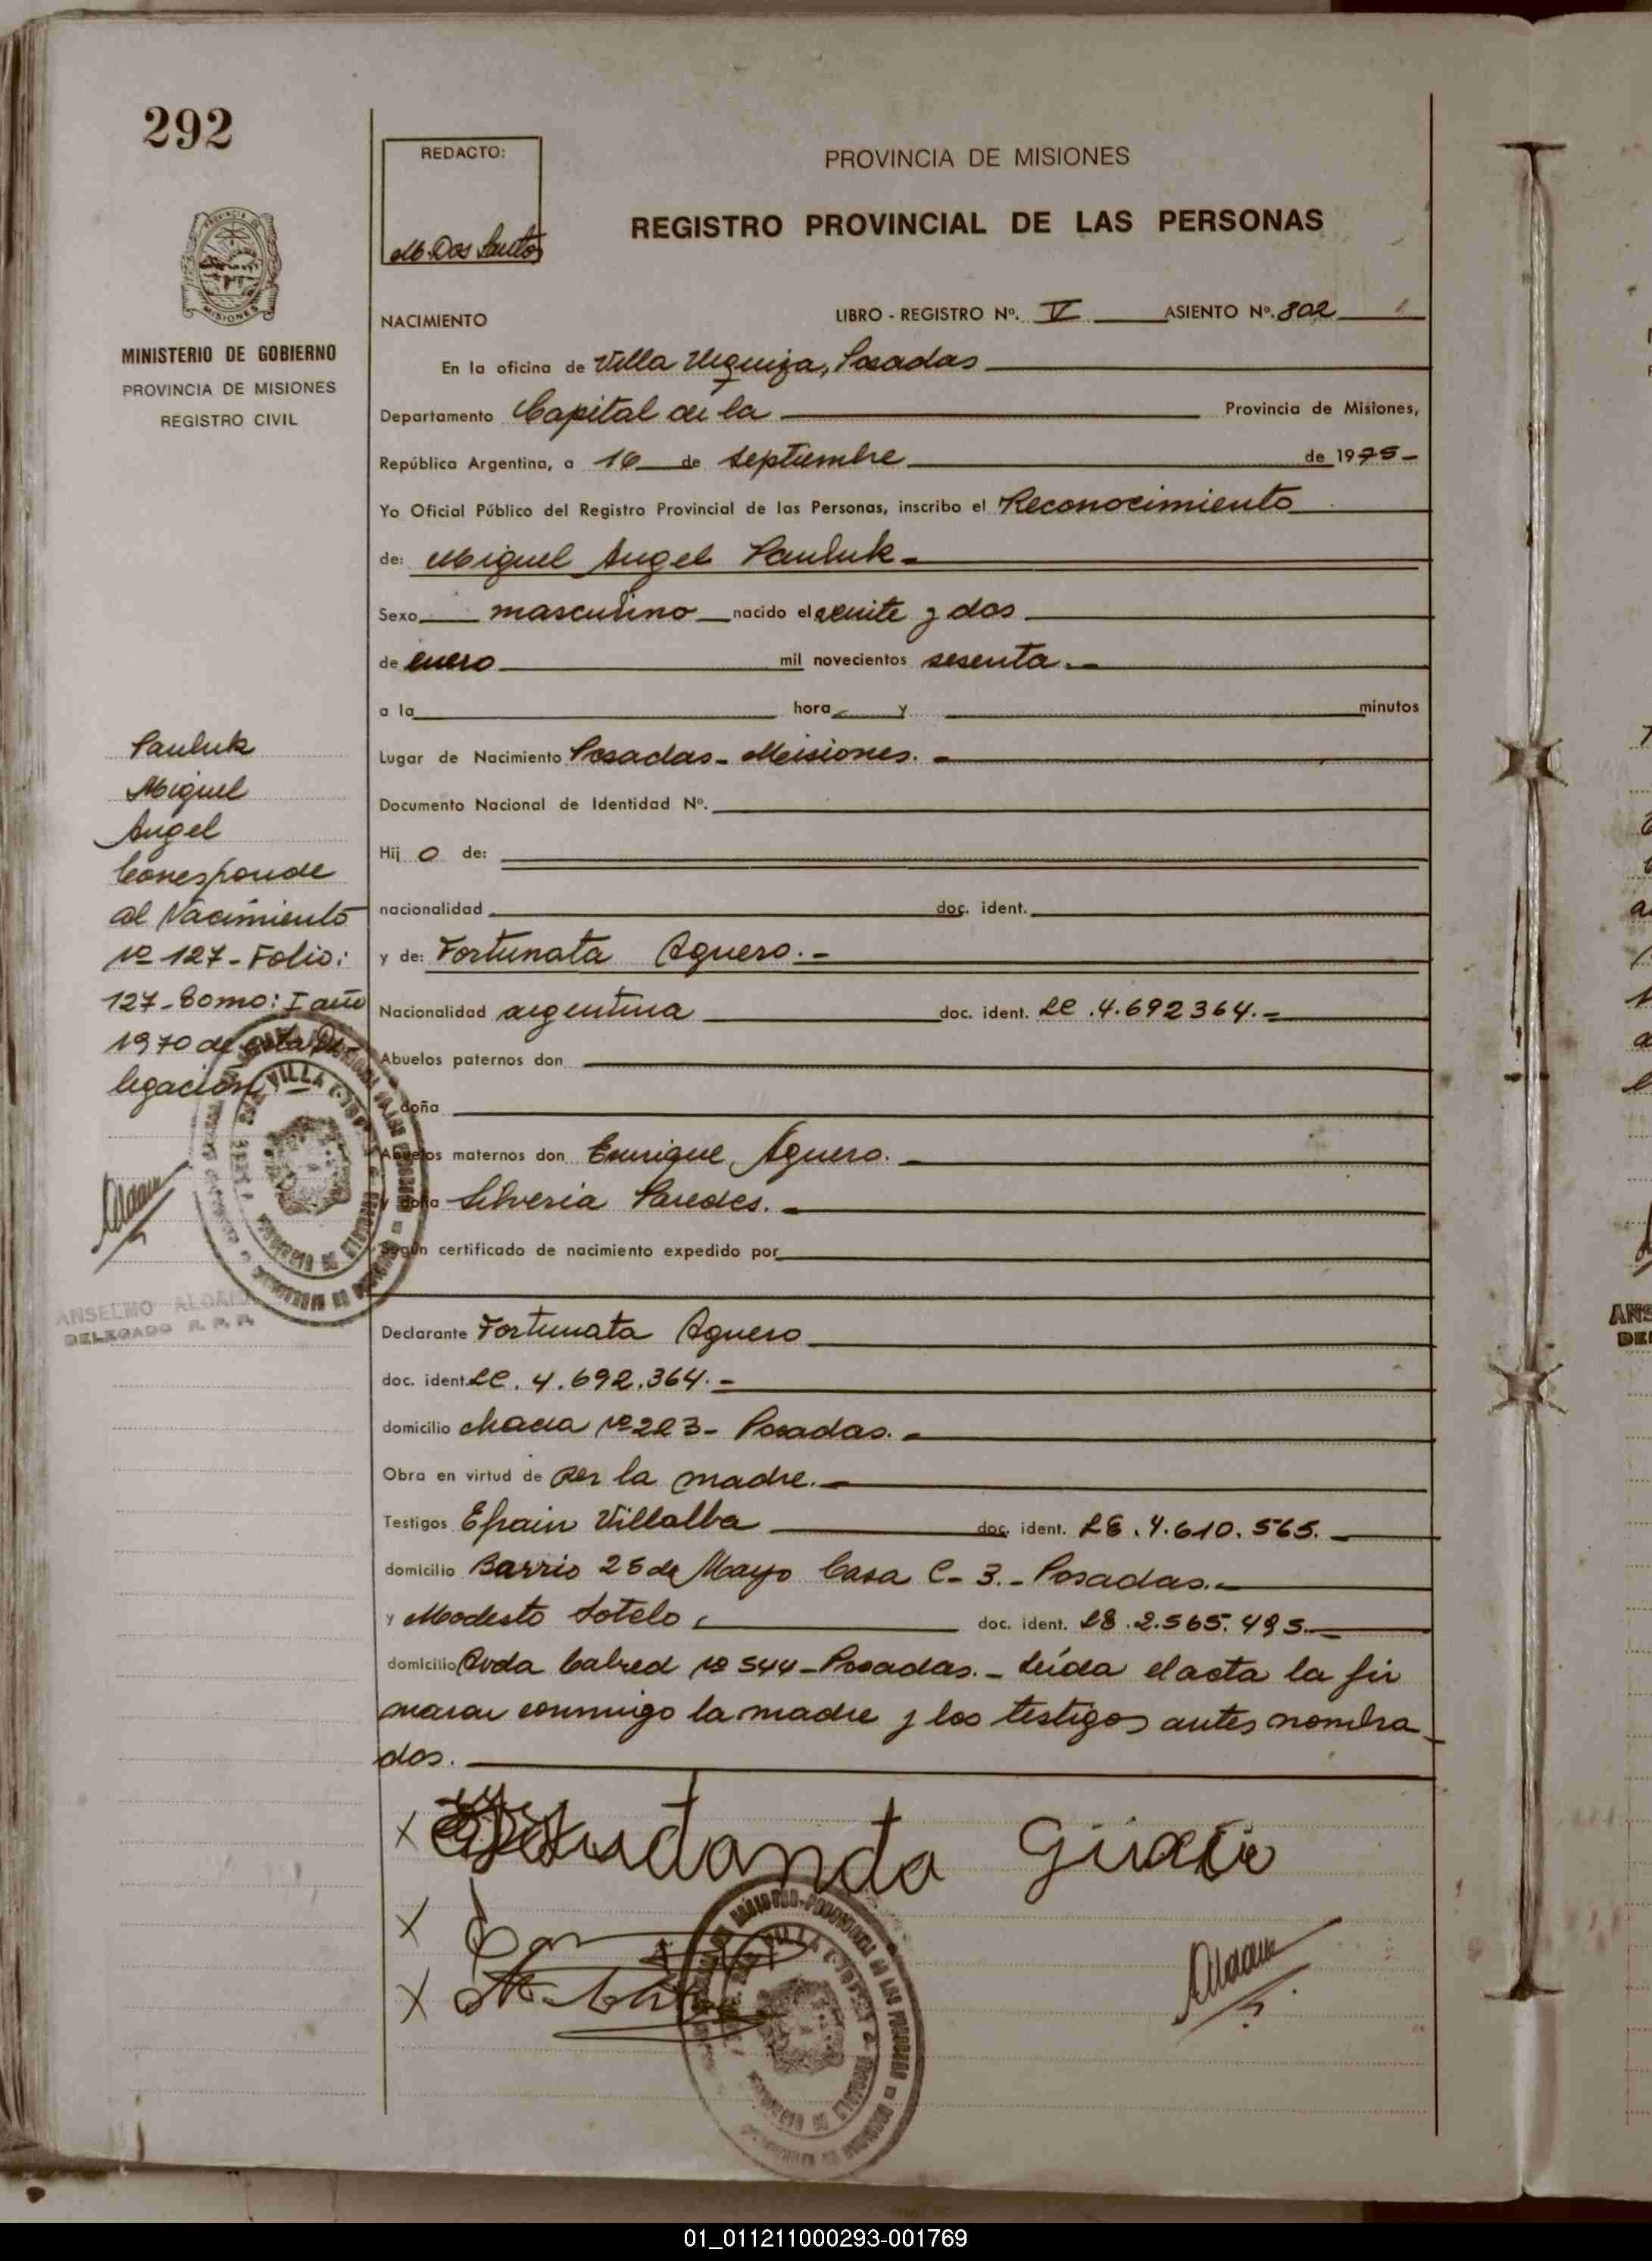 292
REDACTO:
M. Dos Santos
PROVINCIA DE MISIONES
REGISTRO PROVINCIAL DE LAS PERSONAS
MINISTERIO DE GOBIERNO
PROVINCIA DE MISIONES
REGISTRO CIVIL
NACIMIENTO LIBRO - REGISTRO Nº. V ASIENTO Nº. 802
En la oficina de Villa Urquiza, Posadas
Departamento Capital de la Provincia de Misiones,
República Argentina, a 16 de septiembre de 1975-
Yo Oficial Público del Registro Provincial de las Personas, inscribo el Reconocimiento
de: Miguel Angel Pauluk-
Sexo masculino nacido el veinte y dos
de enero mil novecientos sesenta.-
a la hora y minutos
Lugar de Nacimiento Posadas - Misiones.-
Documento Nacional de Identidad Nº.
Hij o de:
nacionalidad doc. ident.
y de: Fortunata Aguero.-
Nacionalidad argentina doc. ident. LC.4.692364.-
Abuelos paternos don
doña
Abuelos maternos don Enrique Aguero.
y doña Silveria Paredes.-
Según certificado de nacimiento expedido por
Pauluk
Miguel
Angel
Corresponde
al Nacimiento
Nº 127 - Folio:
127 - Tomo: I año
1970 de esta De
legación
ANSELMO ALDANA
DELEGADO R. P. P.
Declarante Fortunata Aguero
doc. ident. LC. 4.692.364.-
domicilio chacra Nº 223 - Posadas.-
Obra en virtud de ser la madre.-
Testigos Efrain Villalba doc. ident. LE. 4.610.565.-
domicilio Barrio 25 de Mayo Casa C-3.- Posadas.-
y Modesto Sotelo, doc. ident. LE.2.565.495.-
domicilio Avda Cabred Nº 544 - Posadas.- Leída el acta la fir
maran conmigo la madre y los testigos antes nombra
dos.
01_011211000293-001769